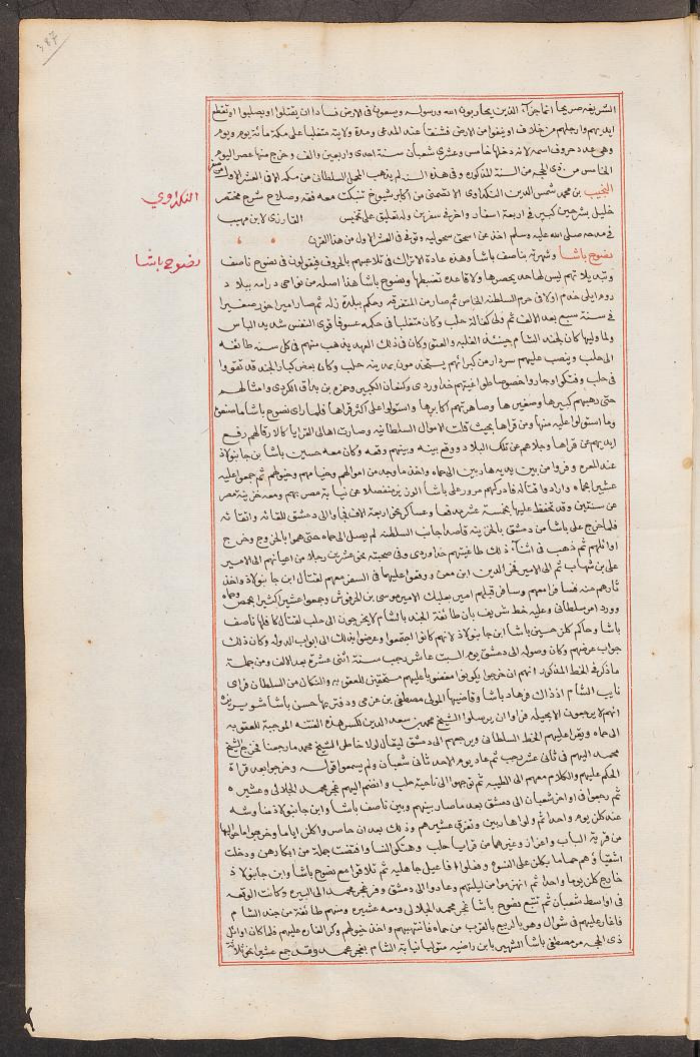 ٣٨٧
الشريفة صريحا انما جزآء الذين يحاربون الله ورسوله ويسعون فى الارض فسادا ان يقتلوا او يصلبوا او تقطع
ايديهم وارجلهم من خلاف او ينفوا من الارض فشنقا عند المدعى ومدة ولايته متغلبا على مكة مائة يوم ويوم
وهى عدد حروف اسمه لانه دخلها خامس وعشرى شعبان سنة احدى واربعين والف وخرج منها عصر اليوم
الخامس من ذى الحجه من السنة المذكوره وفى هذه السنه لم يذهب المحمل السلطانى من مكه الا فى العشر الاول من صفر
النجيب بن محمد شمس الدين التكداوى الانضمنى من اكابر شيوخ تنبكت معه فقه وصلاح شرح مختصر
خليل بشرحين كبير فى اربعة اسفار واخر فى سفرين وله تعليق على تخميس الفازازى لابن مهيب
فى مدحه صلى الله عليه وسلم اخذ عن اسحق سمى وتوفى فى العشر الاول من هذا القرن
نصوح باشا وشهرته بناصف باشا وهذه عادة الاتراك فى تلاعبهم بالحروف فيقولون فى نصوح ناصف
وتبديلاتهم ليس لها حد يحصرها ولا قاعده تضبطها ونصوح باشا هذا اصله من نواحى درامه ببلاد
روم ايلى خدم اولا فى حرم السلطنه الخاص ثم صار من المتفرقه وحكم ببلدة زله ثم صار امير اخور صغيرا
فى سنة سبع بعد الالف ثم ولى كفالة حلب وكان متغلبا فى حكمه عسوفا قوى النفس شديد الباس
ولما وليها كان لجند الشام حينئذ الغلبه والعتو وكان فى ذلك العهد يذهب منهم فى كل سنه طائفه
الى حلب وينصب عليهم سردار من كبرائهم يستخدمون بمدينة حلب وكان بعض كبار الجند قد تقووا
فى حلب وفتكوا وجاروا خصوصا طواغيتهم خداوردى وكنعان الكبير وحمزه بن الكردى وامثالهم
حتى رهبهم كبيرها وصغيرها وصاهرتهم اكابرها واستولوا على اكثر قراها فلما راى نصوح باشا ما صنعوا
وما استولوا عليه منها ومن قراها بحيث قلت الاموال السلطانية وصارت اهالى القرايا كالارقا لهم رفع
ايديهم عن قراها وجلاهم عن تلك البلاد ووقع بينه وبينهم وقعه وكان معه حسين باشا بن جانبولاذ
عند المعره وفروا من بين يديه هاربين الى حماه واخذ ما وجد من اموالهم وخيامهم وخيولهم ثم جمعوا عليه
عشيرا بحماه وارادوا قتاله فادركهم مرور على باشا الوزير منفصلا عن نيابة مصر بهم ومعه خزينة مصر
عن سنتين وقد تحفظ عليها بخمسة عشر مدفعا وعساكر نحو اربعة الاف فجاوا الى دمشق للقائه
فلما خرج على باشا من دمشق بالخزينه قاصدا جانب السلطنه لم يصل الى حماه حتى هموا بالخروج وخرج
اوائلهم ثم ذهب فى اثنآء ذلك طاغيتهم خداوردى وفى صحبته نحو عشرين رجلا من اعيانهم الى الامير
على بن شهاب ثم الى الامير فخر الدين ابن معن ووقعوا عليهما فى السفر معهم لقتال ابن جانبولاذ واخذ
ثارهم منه فسافرا معهم وسافر قبلهم امير بعلبك الامير موسى بن الحرفوش وجمعوا عشيرا كثيرا بحمص وحماه
وورد امر سلطانى وعليه خط شريف بان طائفة الجند بالشام لا يخرجون الى حلب لقتال كافلها ناصف
باشا وحاكم كلز حسين باشا ابن جانبولاذ لانهم كانوا اجتمعوا وعرضوا بذلك الى ابواب الدوله وكان ذلك
جواب عرضهم وكان وصوله الى دمشق يوم السبت عاشر رجب سنة اثنى عشرة بعد الالف ومن جملة
ما ذكر فى الخط المذكور انهم ان خرجوا يكونوا مغضوبا عليهم مستحقين للعقوبه والنكال من السلطان فراى
نايب الشام اذ ذاك فرهاد باشا وقاضيها المولى مصطفى بن عزمى ودفتريها حسن باشا شوربزه
انهم لا يرجعون الا بحيله فراوا ان يرسلوا الشيخ محمد بن سعد الدين لكسر هذه الفتنه الموجبة للعقوبه
الى حماه ويقرا عليهم الخط السلطانى ويرجعهم الى دمشق ليقال لولا خاطر الشيخ محمد ما رجعنا فخرج الشيخ
محمد اليهم فى ثانى عشر رجب ثم عاد يوم الاحد ثانى شعبان ولم يسمعوا قوله وخرجوا بعد قراة
الحكم عليهم والكلام معهم الى الطيبه ثم توجهوا الى ناحية حلب وانضم اليهم غجر محمد الجلالى وعشيره
ثم رجعوا فى اواخر شعبان الى دمشق بعد ما صار بينهم وبين ناصف باشا وابن جانبولاذ مناوشه
عند كلز يوم واحد ثم ولوا هاربين وتفرق عشيرهم وذلك بعد ان حاصروا كلز اياما وخرجوا ما حولها
من قرية الباب واعزاز وغيرهما من قرايا حلب وهتكوا النسا وافتضت جملة من ابكارهن ودخلت
اشقياؤهم حماما بكلز على النسوه وفعلوا افاعيل جاهليه ثم تلاقوا مع نصوح باشا وابن جانبولاذ
خارج كلز يوما واحدا ثم انهزموا من ليلتهم وعادوا الى دمشق وفر غجر محمد الى البيره وكانت الوقعه
فى اواسط شعبان ثم تتبع نصوح باشا غجر محمد الجلالى ومعه عشيره ومنهم طائفة من جند الشام
فاغار عليهم فى شوال وهو بالربيع بالقرب من حماه فانتهبهم واخذ خيولهم وكر الغاره عليهم فلما كان اوائل
ذى الحجه مر مصطفى باشا الشهير بابن راضيه متوليا نيابة الشام بغجر محمد وقد جمع عشيرا نحو ثلاثة
التكداوي
نصوح باشا